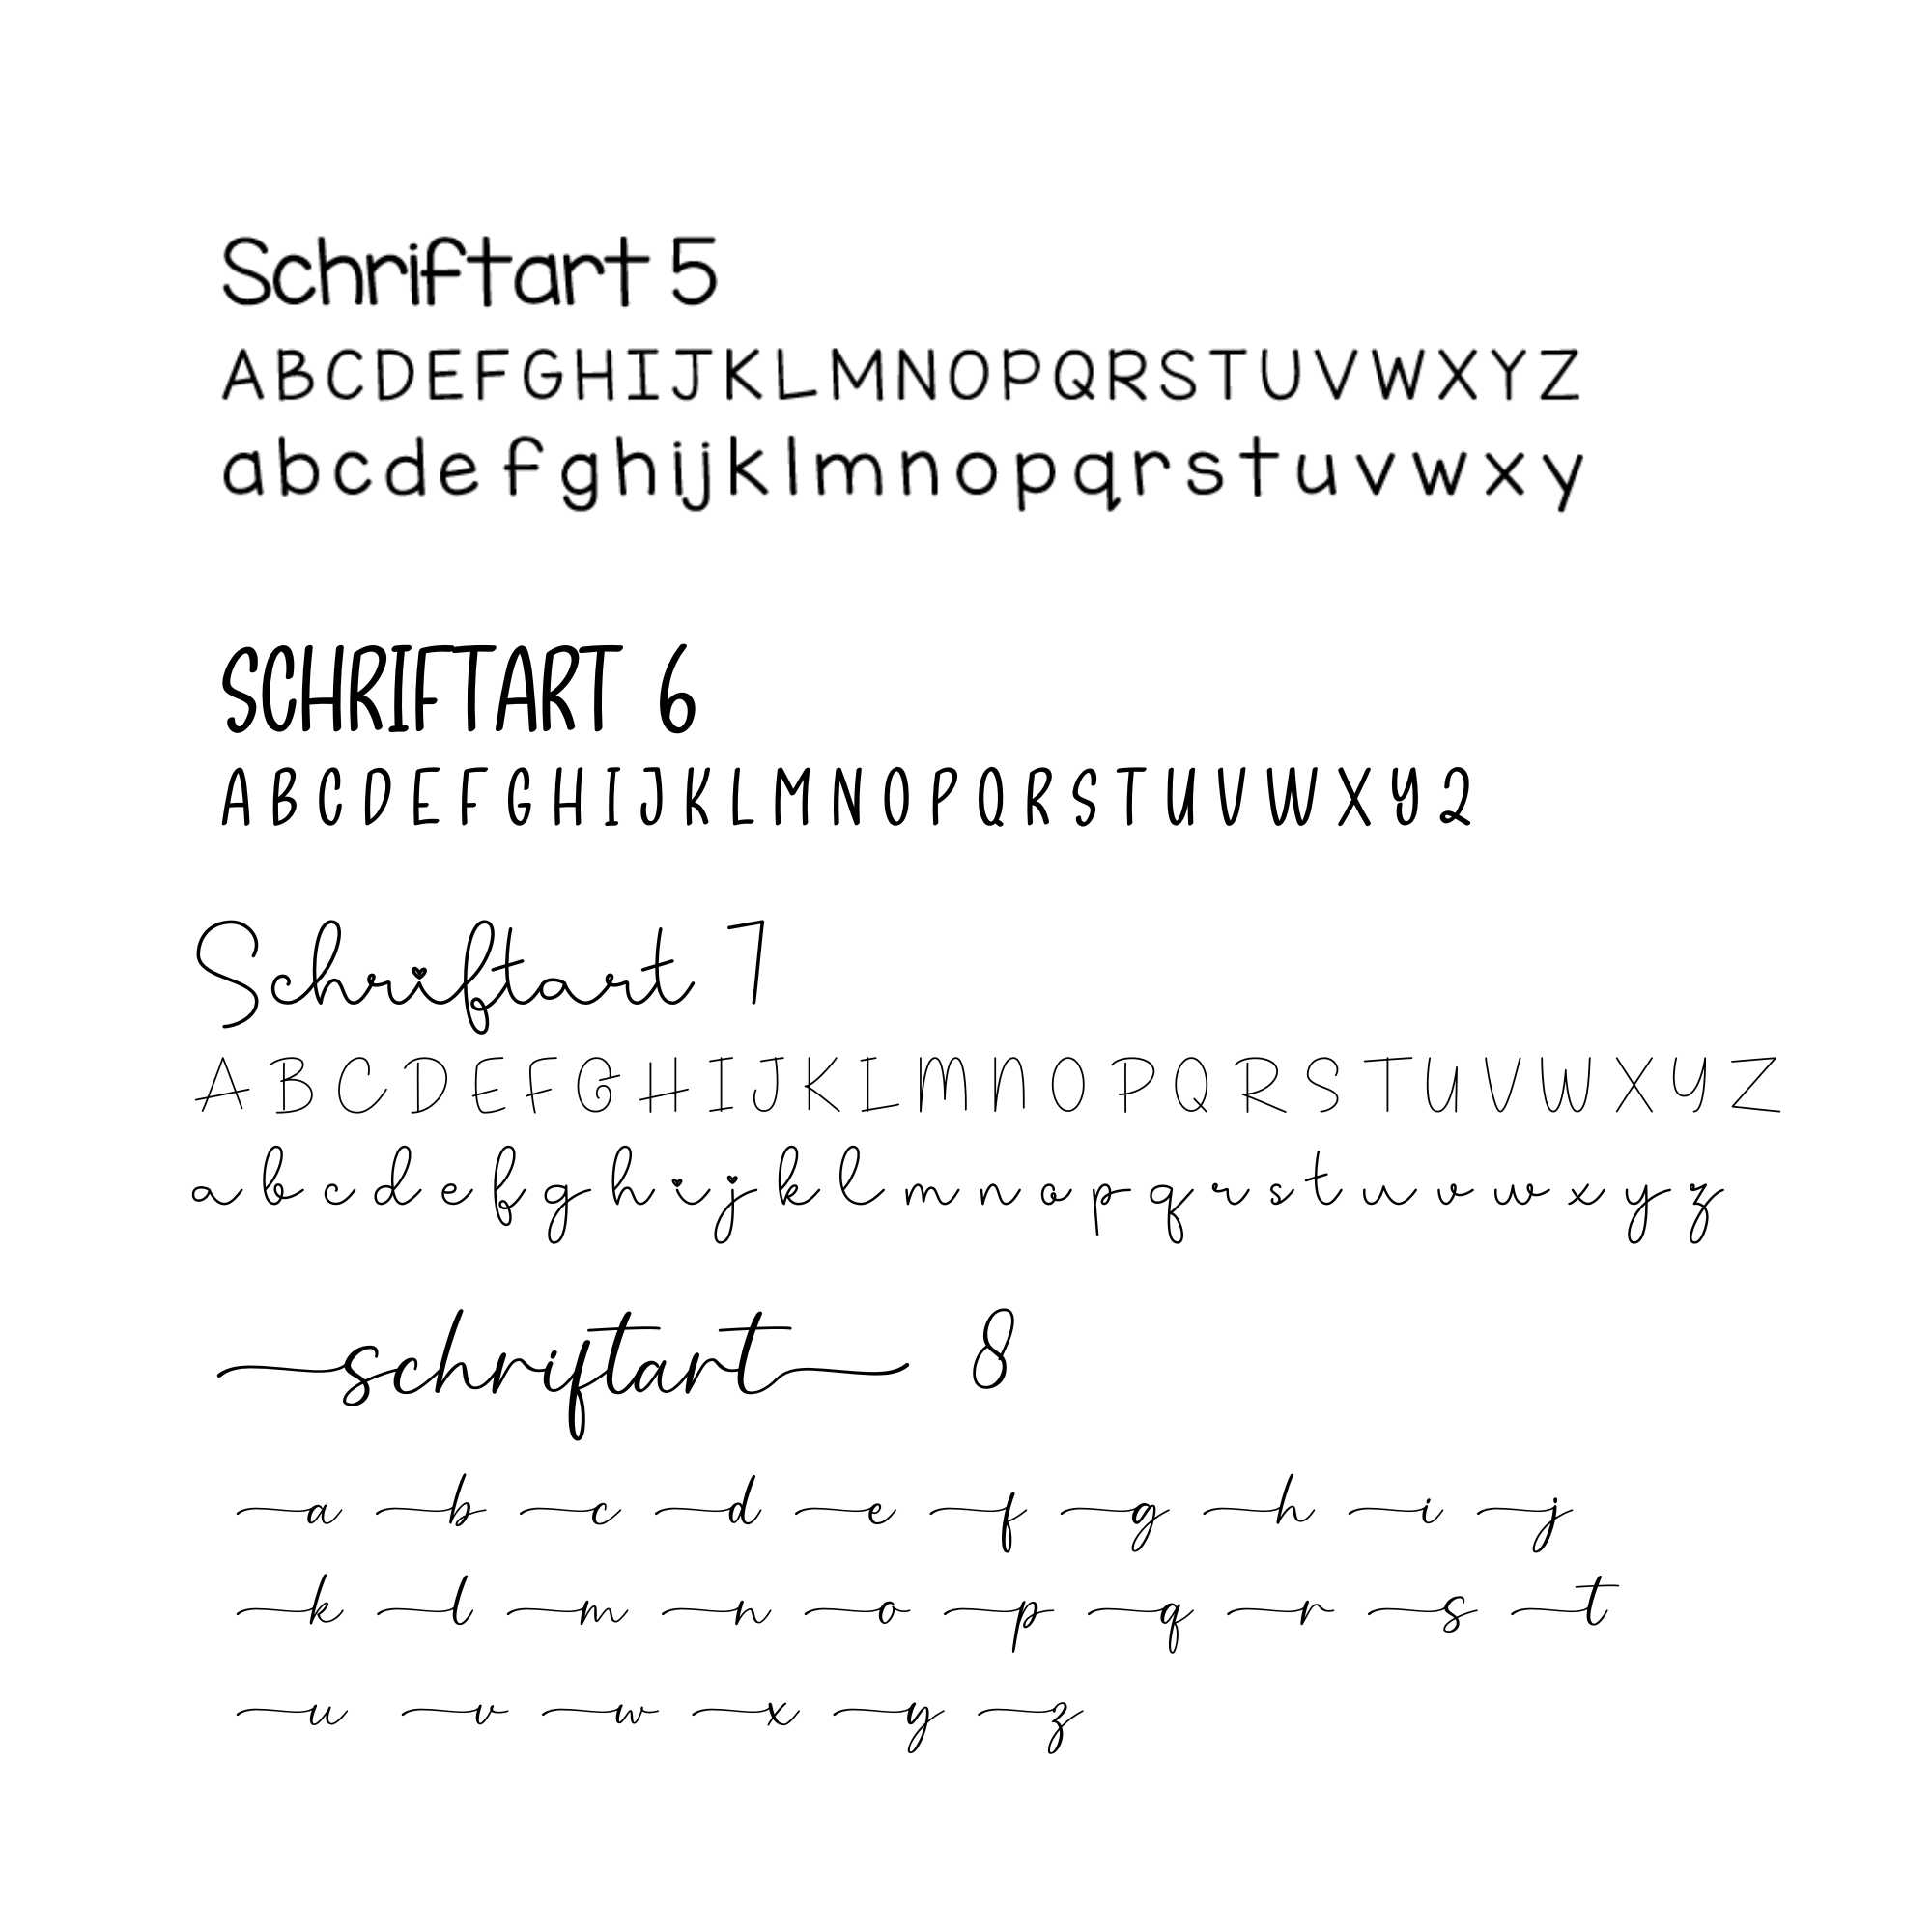 Schriftart 5
ABCDEFGHIJKLMNOPQRSTUVWXYZ
abcdefghijklmnopqrstuvwxy
SCHRIFTART 6
A B C D E F G H I J K L M N O P Q R S T U V W X Y Z
Schriftart 7
A B C D E F G H I J K L M N O P Q R S T U V W X Y Z
a b c d e f g h i j k l m n o p q r s t u v w x y z
schriftart 8
a b c d e f g h i j
k l m n o p q r s t
u v w x y z